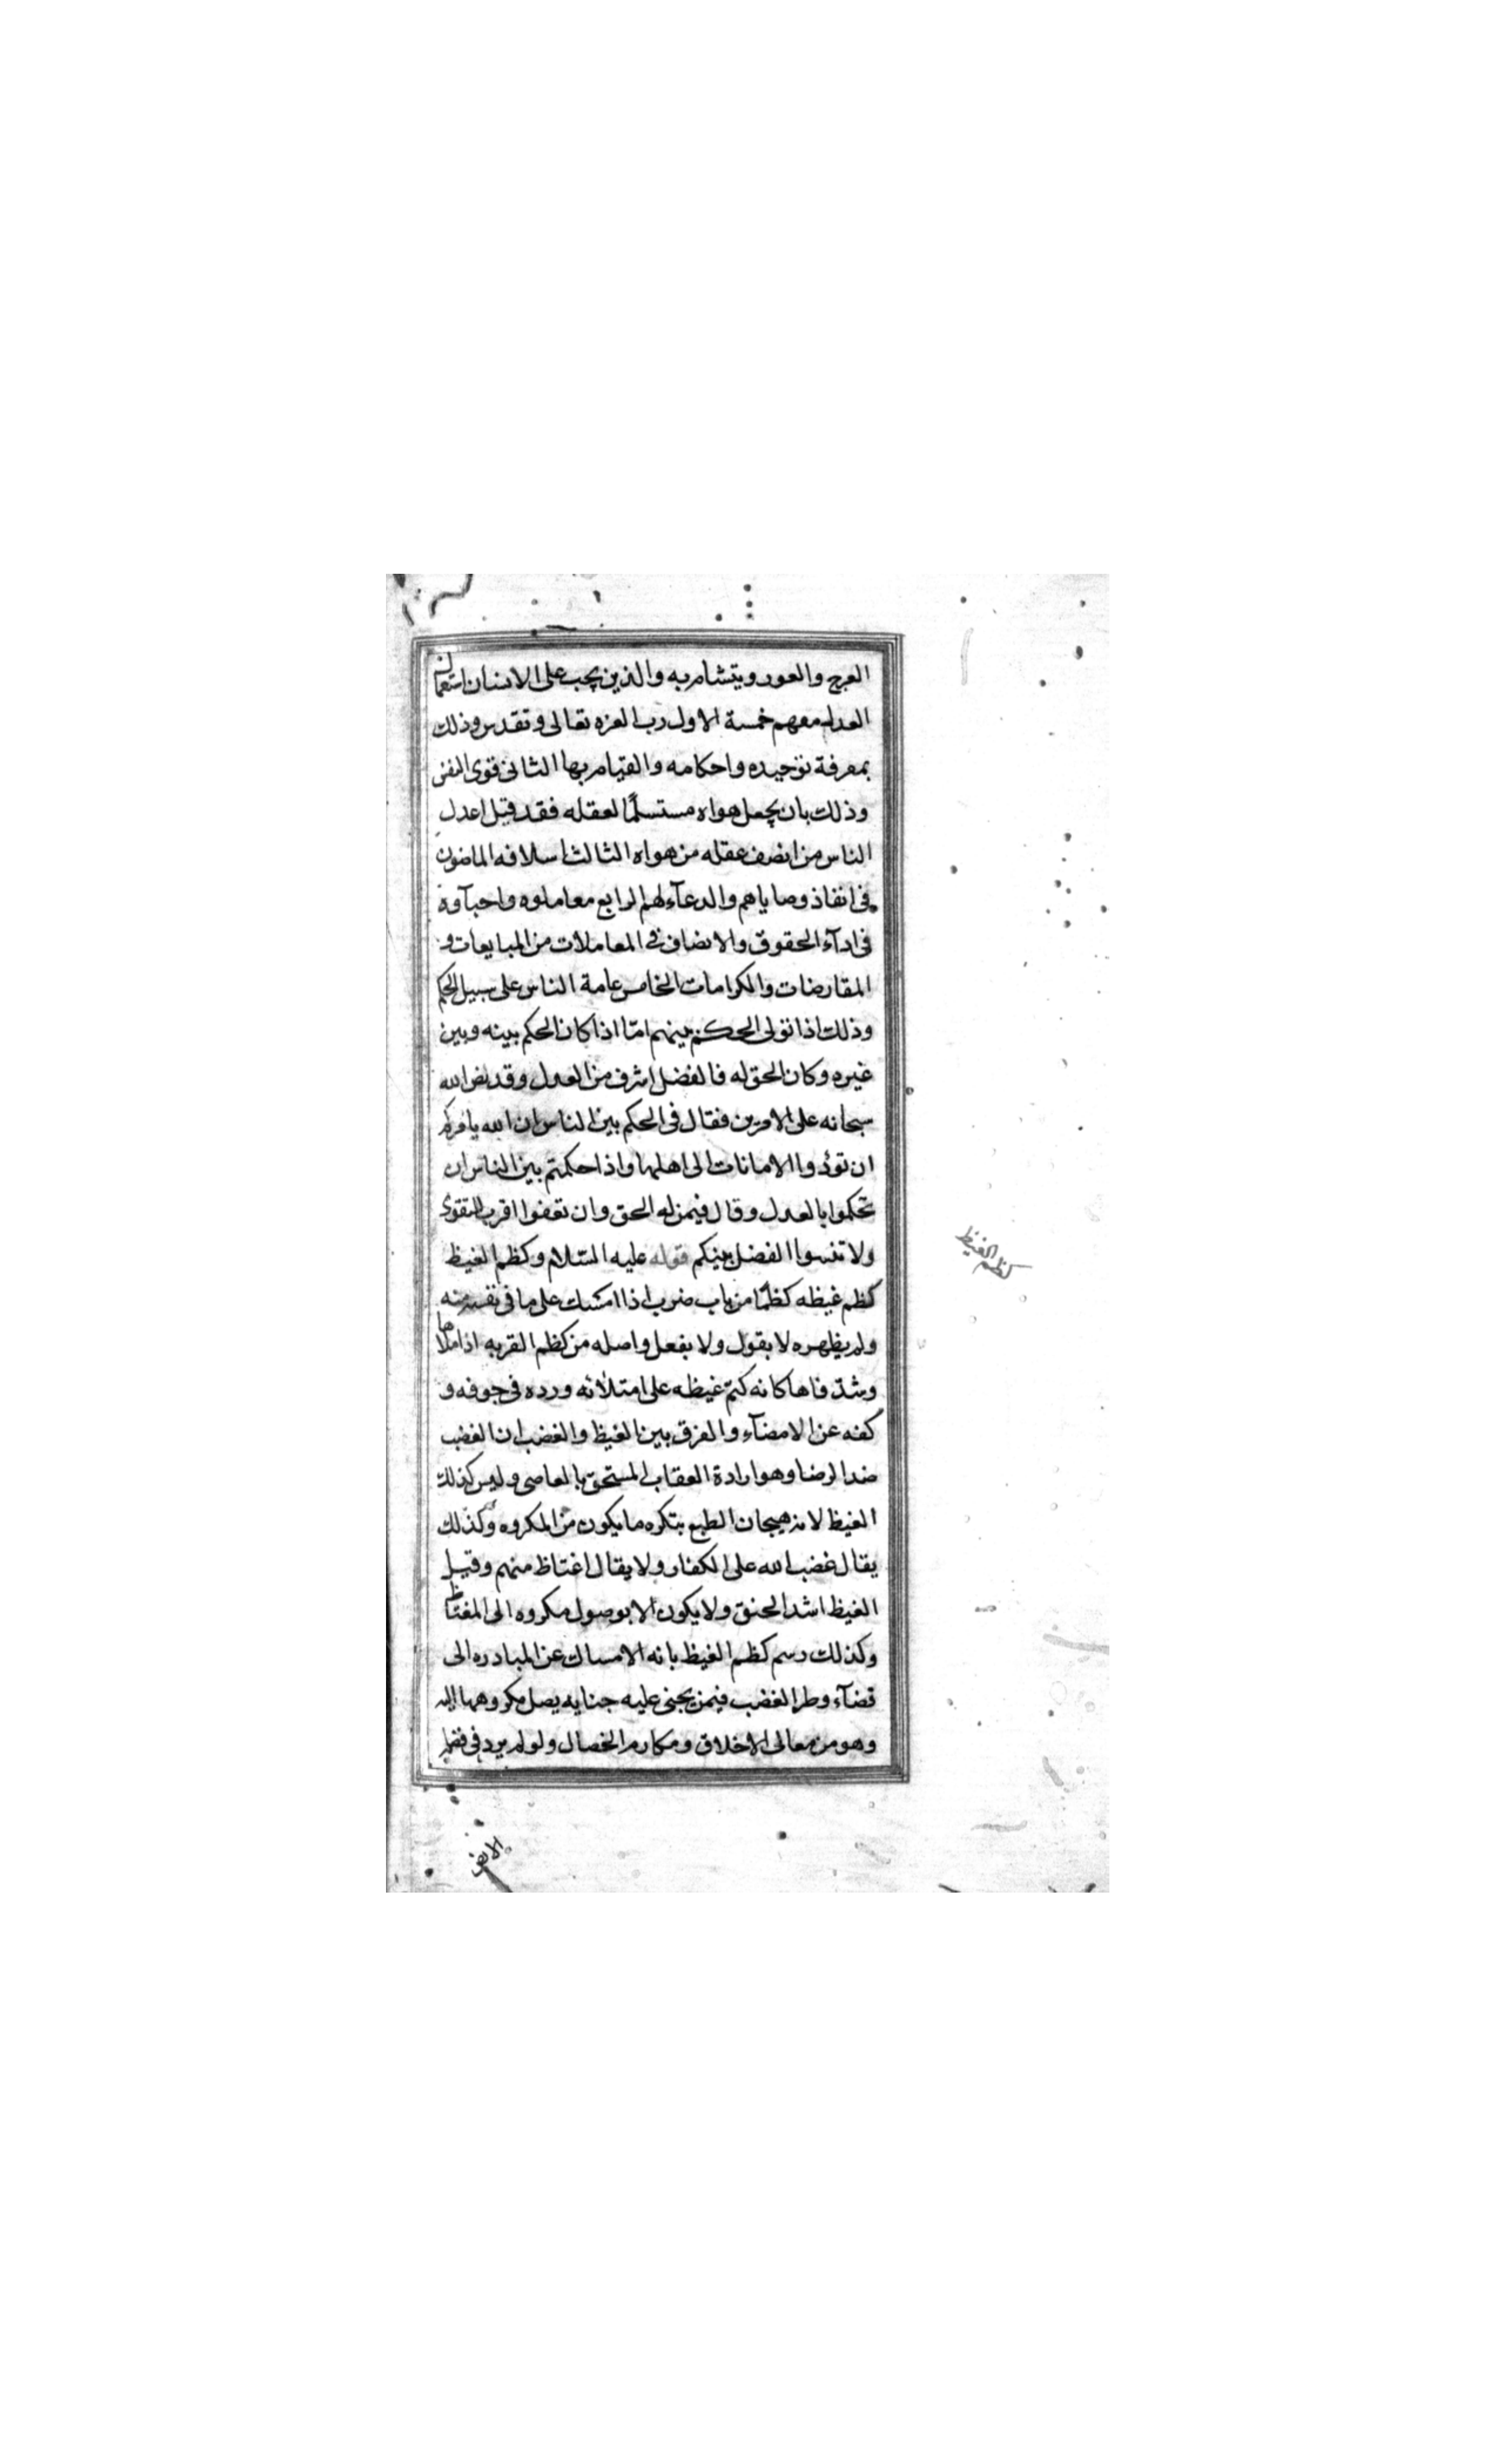 العرج والعور ويتشام به والذين يجب على الانسان استعمال
العدل معهم خمسة الاول رب العزه تعالى وتقدس وذلك
بمعرفة توحيده واحكامه والقيام بها الثانى قوى النفس
وذلك بان يجعل هواه مستسلمًا لعقله فقد قيل اعدل
الناس من انصف عقله من هواه الثالث اسلافه الماضون
فى انفاذ وصاياهم والدعآء لهم الرابع معاملوه واحبآوه
فى ادآء الحقوق والانصاف فى المعاملات من المبايعات و
المقارضات والكرامات الخامس عامة الناس على سبيل الحكم
وذلك اذا تولى الحكم بينهم امّا اذا كان الحكم بينه وبين
غيره وكان الحق له فالفضل اشرف من العدل وقد نص الله
سبحانه على الامرين فقال فى الحكم بين الناس ان الله يامركم
ان تؤدوا الامانات الى اهلها واذا حكمتم بين الناس ان
تحكموا بالعدل وقال فيمن له الحق وان تعفوا اقرب للتقوى
ولا تنسوا الفضل بينكم قوله عليه السّلام وكظم الغيظ
كظم غيظه كظمًا من باب ضرب اذا امسك على ما فى نفسه منه
ولم يظهره لا بقول ولا بفعل واصله من كظم القربه اذا ملاها
وشدّ فاها كانه كتم غيظه على امتلائه ورده فى جوفه و
كفه عن الامضآء والفرق بين الغيظ والغضب ان الغضب
ضد الرضا وهو ارادة العقاب المستحق بالعاصى وليس كذلك
الغيظ لانه هيجان الطبع بتكره ما يكون من المكروه وكذلك
يقال غضب الله على الكفار ولا يقال اغتاظ منهم وقيل
الغيظ اشد الحنق ولا يكون الا بوصول مكروه الى المغتاظ
وكذلك رسم كظم الغيظ بانه الامساك عن المبادره الى
قضآء وطر الغضب فيمن يجنى عليه جنايه يصل مكروهها اليه
وهو من معالى الاخلاق ومكارم الخصال ولو لم يرد فى فضله
كظم الغيظ